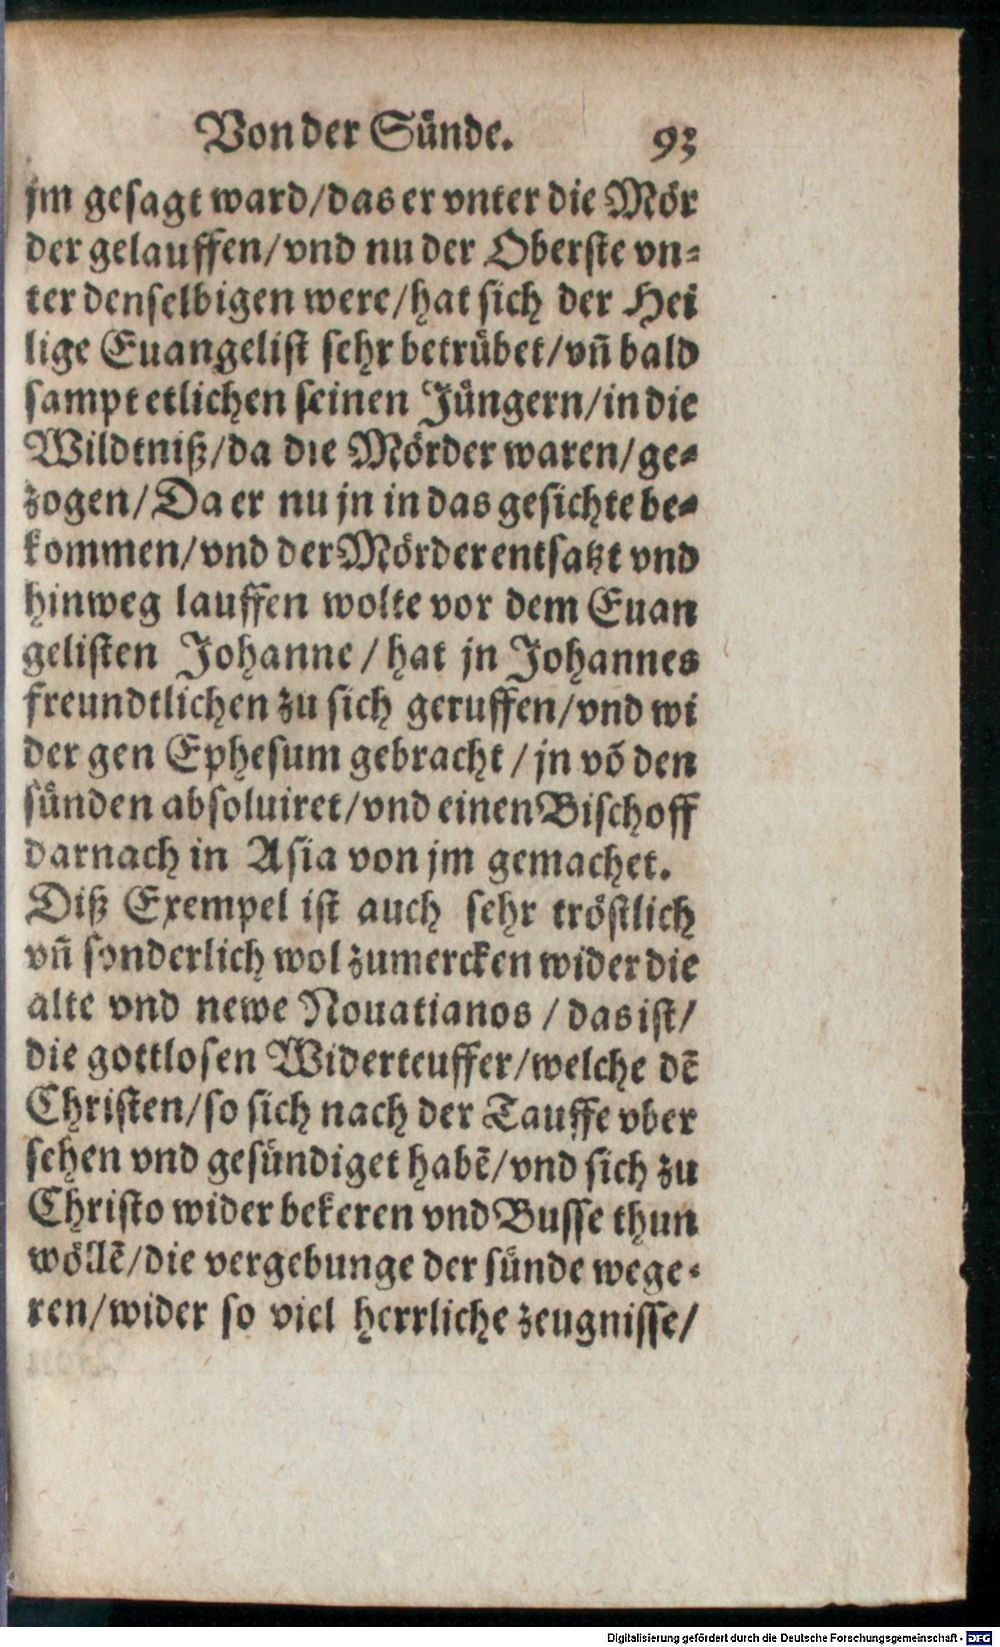 Von der Sünde. 93
jm gesagt ward/das er vnter die Mör
der gelauffen/vnd nu der Oberste vn-
ter denselbigen were/hat sich der Hei
lige Euangelist sehr betrübet/vñ bald
sampt etlichen seinen Jüngern/in die
Wildtniß/da die Mörder waren/ge-
zogen/Da er nu jn in das gesichte be-
kommen/vnd der Mörder entsatzt vnd
hinweg lauffen wolte vor dem Euan
gelisten Johanne/hat jn Johannes
freundtlichen zu sich geruffen/vnd wi
der gen Ephesum gebracht/jn võ den
sünden absoluiret/vnd einen Bischoff
darnach in Asia von jm gemachet.
Diß Exempel ist auch sehr tröstlich
vñ sonderlich wol zumercken wider die
alte vnd newe Nouatianos/das ist/
die gottlosen Widerteuffer/welche dẽ
Christen/so sich nach der Tauffe vber
sehen vnd gesündiget habẽ/vnd sich zu
Christo wider bekeren vnd Busse thun
wöllẽ/die vergebunge der sünde wege-
ren/wider so viel herrliche zeugnisse/
Digitalisierung gefördert durch die Deutsche Forschungsgemeinschaft - DFG